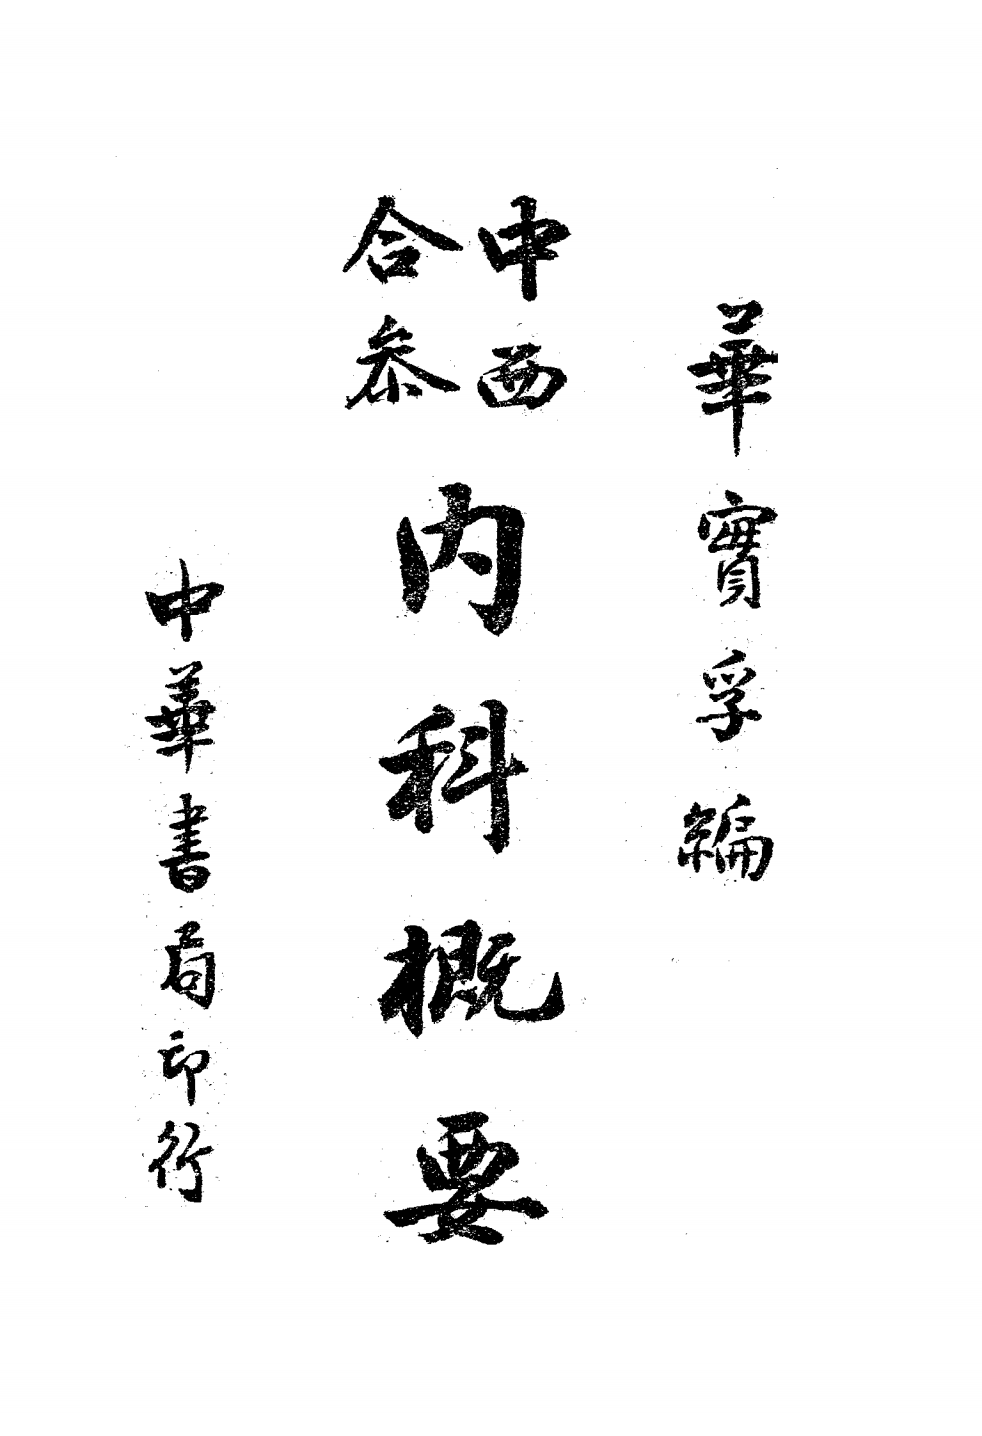 華實孚編
中西
合参
內科概要
中華書局印行